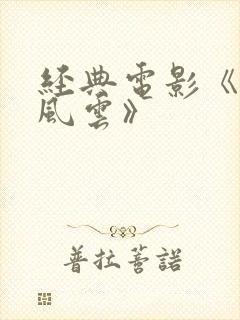 經典電影《
風雲》
普拉蒈諾